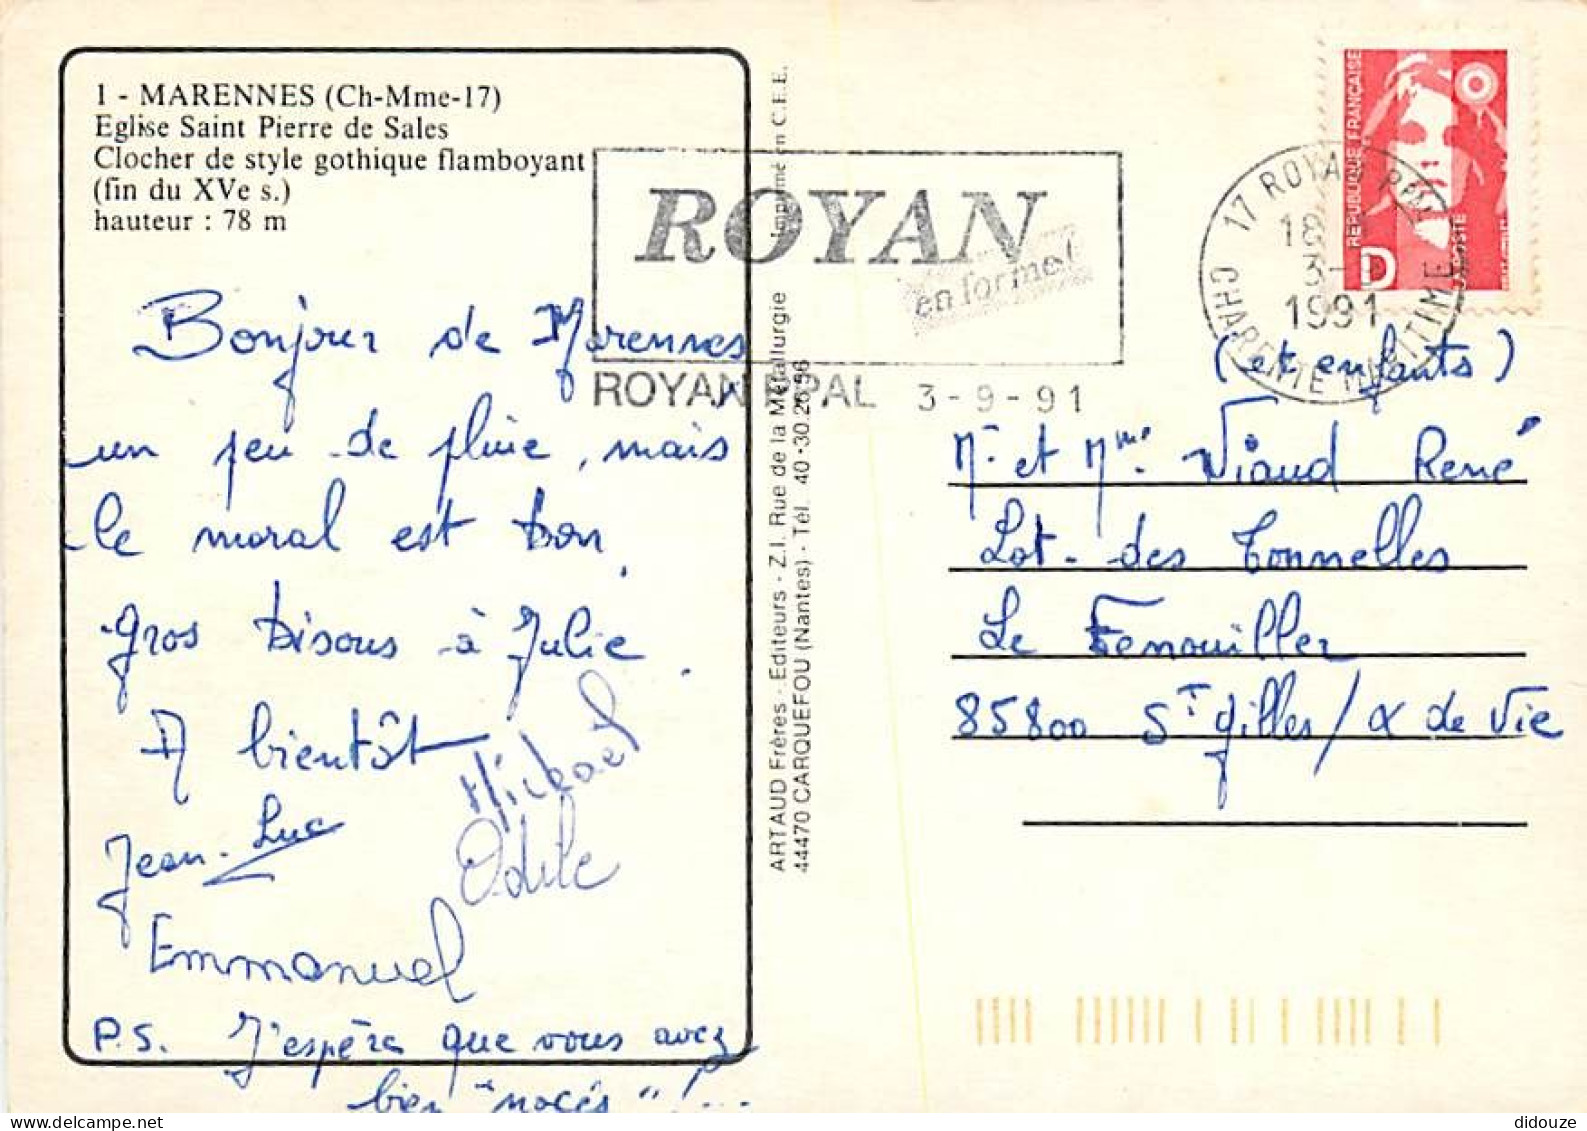 1 - MARENNES (Ch-Mme-17)
Eglise Saint Pierre de Sales
Clocher de style gothique flamboyant
(fin du XVe s.)
hauteur : 78 m
Bonjour de Marennes
un peu de pluie, mais
le moral est bon.
Gros bisous à Julie.
A bientôt
Mickael
Jean-Luc
Odile
Emmanuel
P.S. J'espère que vous avez
bien "nocés"!...
ARTAUD Frères - Editeurs - Z.I. Rue de la Métallurgie Imprimé en C.E.E.
44470 CARQUEFOU (Nantes) - Tél. 40.30.26.56
ROYAN
en forme!
ROYAN PPAL 3-9-91
REPUBLIQUE FRANÇAISE
D
LA POSTE
17 ROYAN PPAL
18
3-9
1991
CHARENTE MARITIME
(et enfants)
Mr et Mme Viaud René
Lot. des Tonnelles
Le Fenouiller
85800 St Gilles / X de Vie
didouze